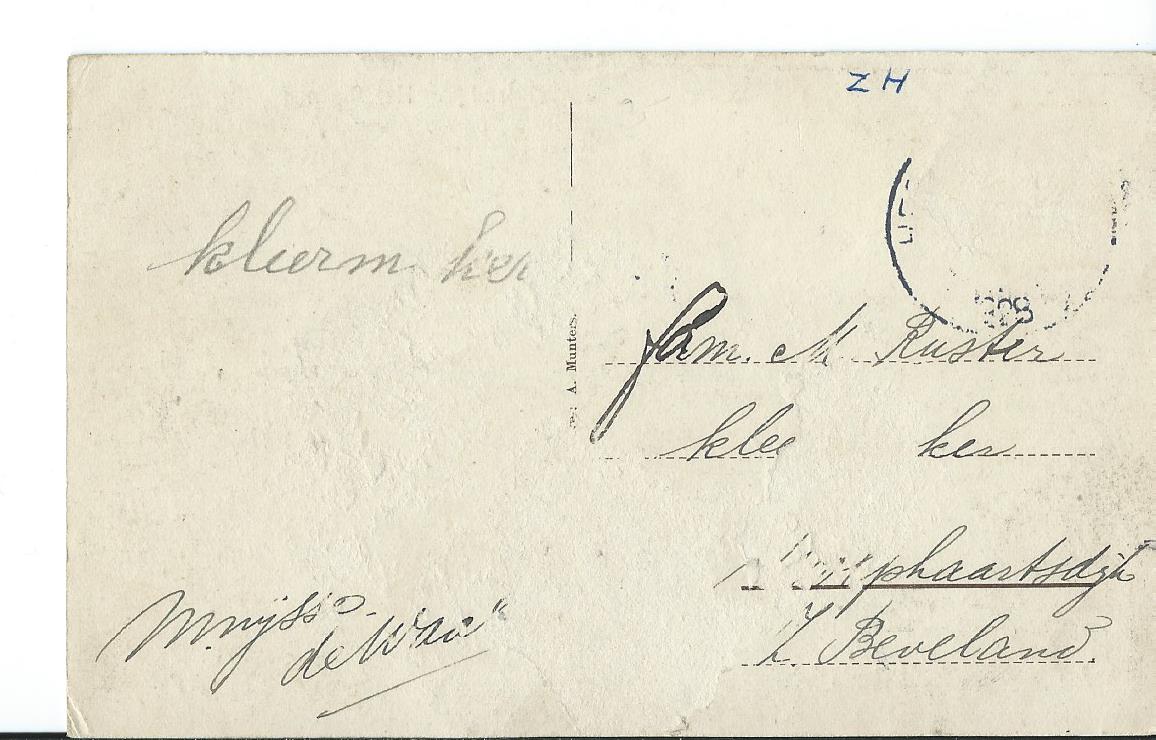 ZH
kleerm ker
A. Munters.
fam. M Kuster
klee ker
phaartsdijk
Z. Beveland.
M. nyss
de Waa